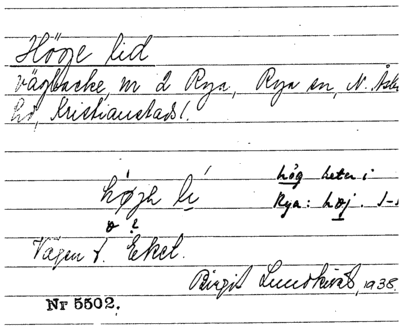 Höge lid
vägbacke, nr 2 Rya, Rya sn, N. Åsbo
hd, Kristianstads l.
hög heter i
Rya: høj.
Vägen t. Eket.
Birgit Lundkvist, 1938.
Nr 5502.